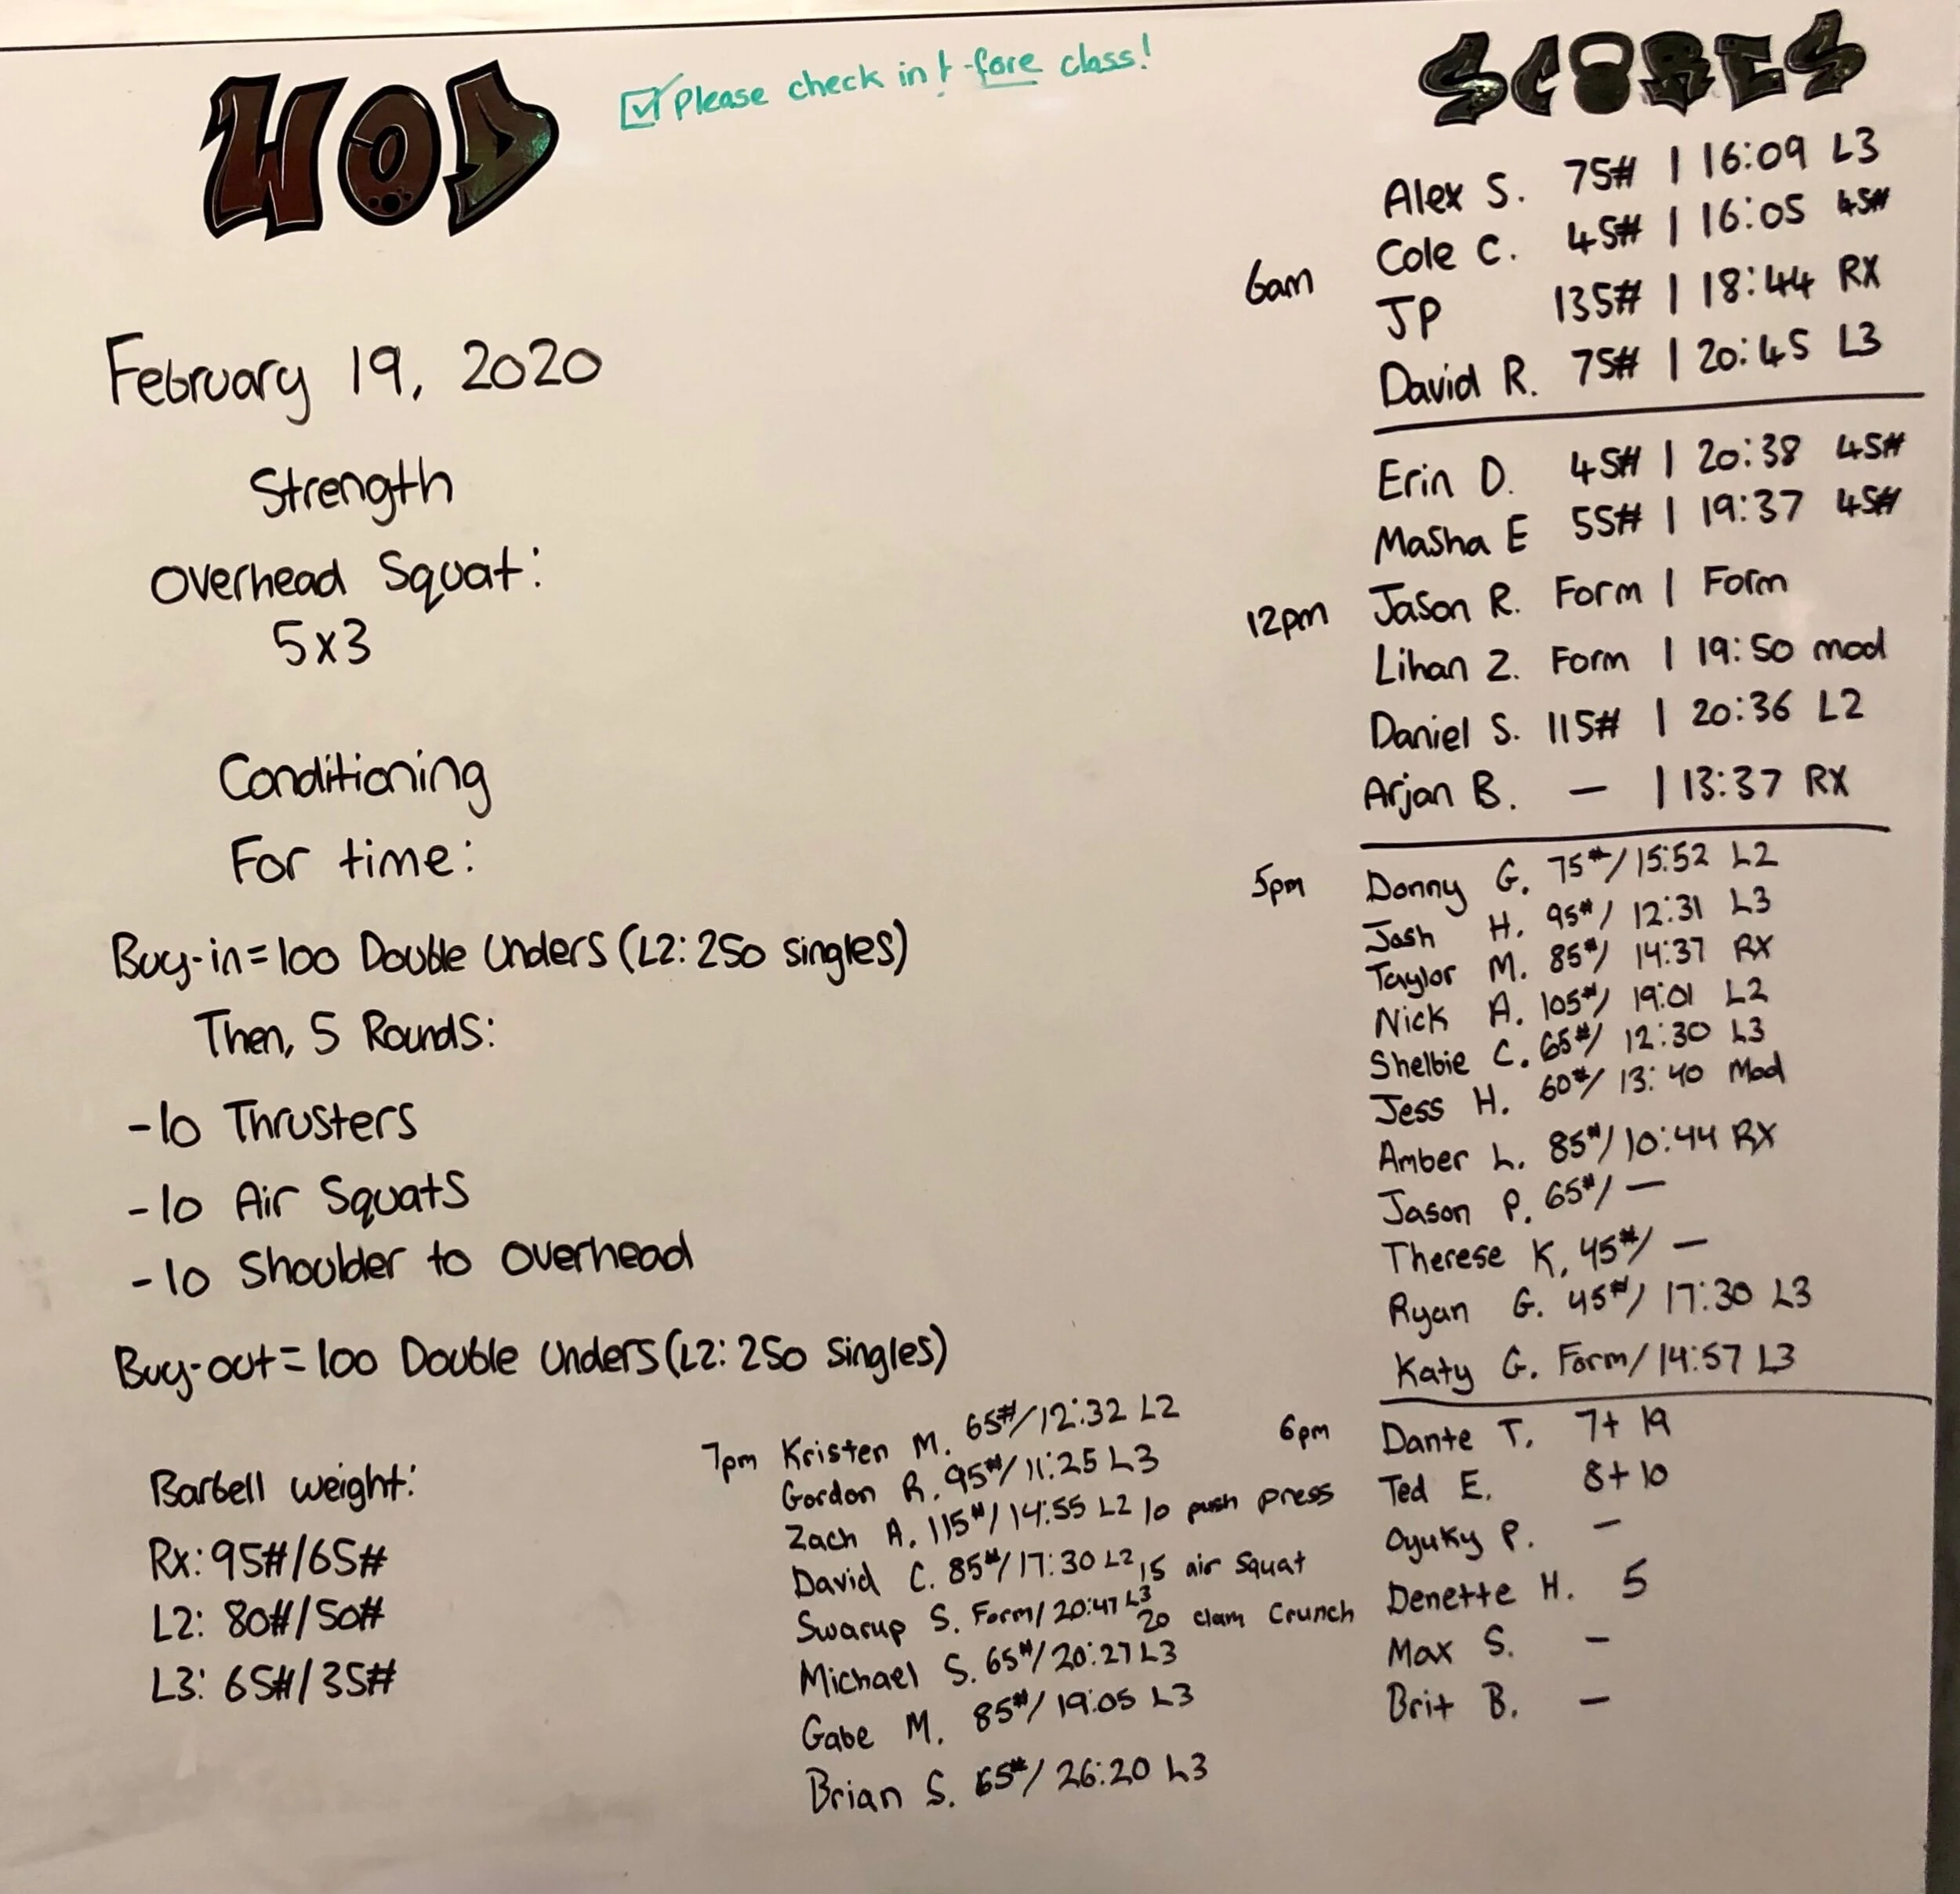 WOD
Please check in -fore class!
February 19, 2020
Strength
Overhead Squat:
5x3
Conditioning
For time:
Buy-in=100 Double Unders (L2: 250 singles)
Then, 5 Rounds:
-10 Thrusters
-10 Air Squats
-10 Shoulder to overhead
Buy-out=100 Double Unders (L2: 250 singles)
Barbell weight:
Rx: 95#/65#
L2: 80#/50#
L3: 65#/35#
SCORES
6am
Alex S. 75# | 16:09 L3
Cole C. 45# | 16:05 45#
JP 135# | 18:44 RX
David R. 75# | 20:45 L3
12pm
Erin D. 45# | 20:38 45#
Masha E 55# | 19:37 45#
Jason R. Form | Form
Lihan Z. Form | 19:50 mod
Daniel S. 115# | 20:36 L2
Arjan B. — | 13:37 RX
5pm
Donny G. 75#/15:52 L2
Josh H. 95#/ 12:31 L3
Taylor M. 85#/ 14:37 RX
Nick A. 105#/ 19:01 L2
Shelbie C. 65#/ 12:30 L3
Jess H. 60#/ 13:40 Mod
Amber L. 85#/ 10:44 RX
Jason P. 65#/ —
Therese K. 45#/ —
Ryan G. 45#/ 17:30 L3
Katy G. Form/14:57 L3
6pm
Dante T. 7+ 19
Ted E. 8+10
Oyuky P. —
Denette H. 5
Max S. —
Brit B. —
10 push press
15 air squat
20 clam crunch
7pm
Kristen M. 65#/12:32 L2
Gordon R. 95#/11:25 L3
Zach A. 115#/14:55 L2
David C. 85#/17:30 L2
Swarup S. Form/20:47 L3
Michael S. 65#/20:27 L3
Gabe M. 85#/ 19:05 L3
Brian S. 65#/ 26:20 L3